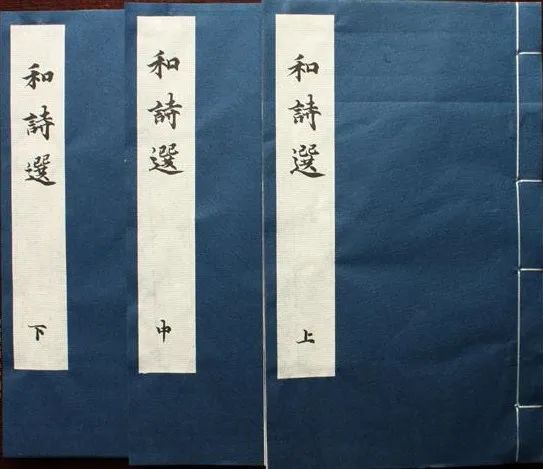 和詩選 上
和詩選 中
和詩選 下